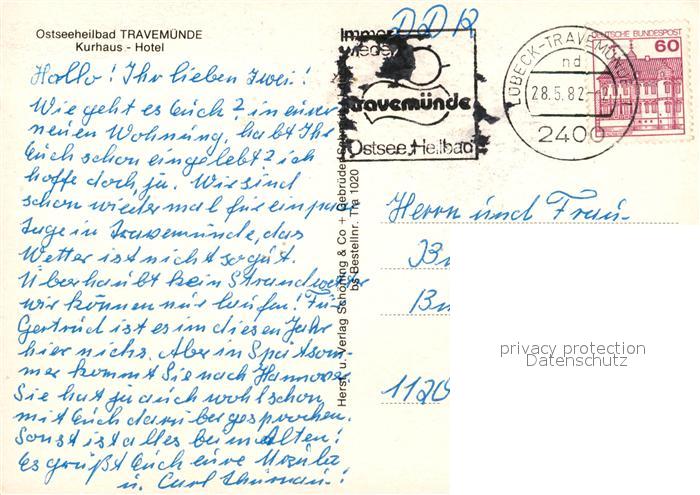 Ostseeheilbad TRAVEMÜNDE
Kurhaus - Hotel
Hallo! Ihr lieben zwei!
Wie geht es Euch? in eurer
neuen Wohnung, habt Ihr
Euch schon eingelebt? ich
hoffe doch, ja. Wir sind
schon wieder mal für ein paar
Tage in Travemünde, das
Wetter ist nicht so gut.
Überhaubt kein Strandwetter
wir können nur laufen! Für
Gertrud ist es im diesen Jahr
hier nichs. Aber in Spätsom-
mer kommt Sie nach Hannover
Sie hat ja auch wohl schon
mit Euch darüber gesprochen.
Sonst ist alles beim Alten!
Es grüßt Euch eure Ursula
u. Carl
Herst. u. Verlag Schöning & Co + Gebrüder
Bestellnr. Tra 1020
DDR
Immer
wieder
travemünde
Ostsee Heilbad
LÜBECK-TRAVEMÜNDE
nd
28.5.82
2400
DEUTSCHE BUNDESPOST
60
Herrn und Frau
B
B
1120
privacy protection
Datenschutz